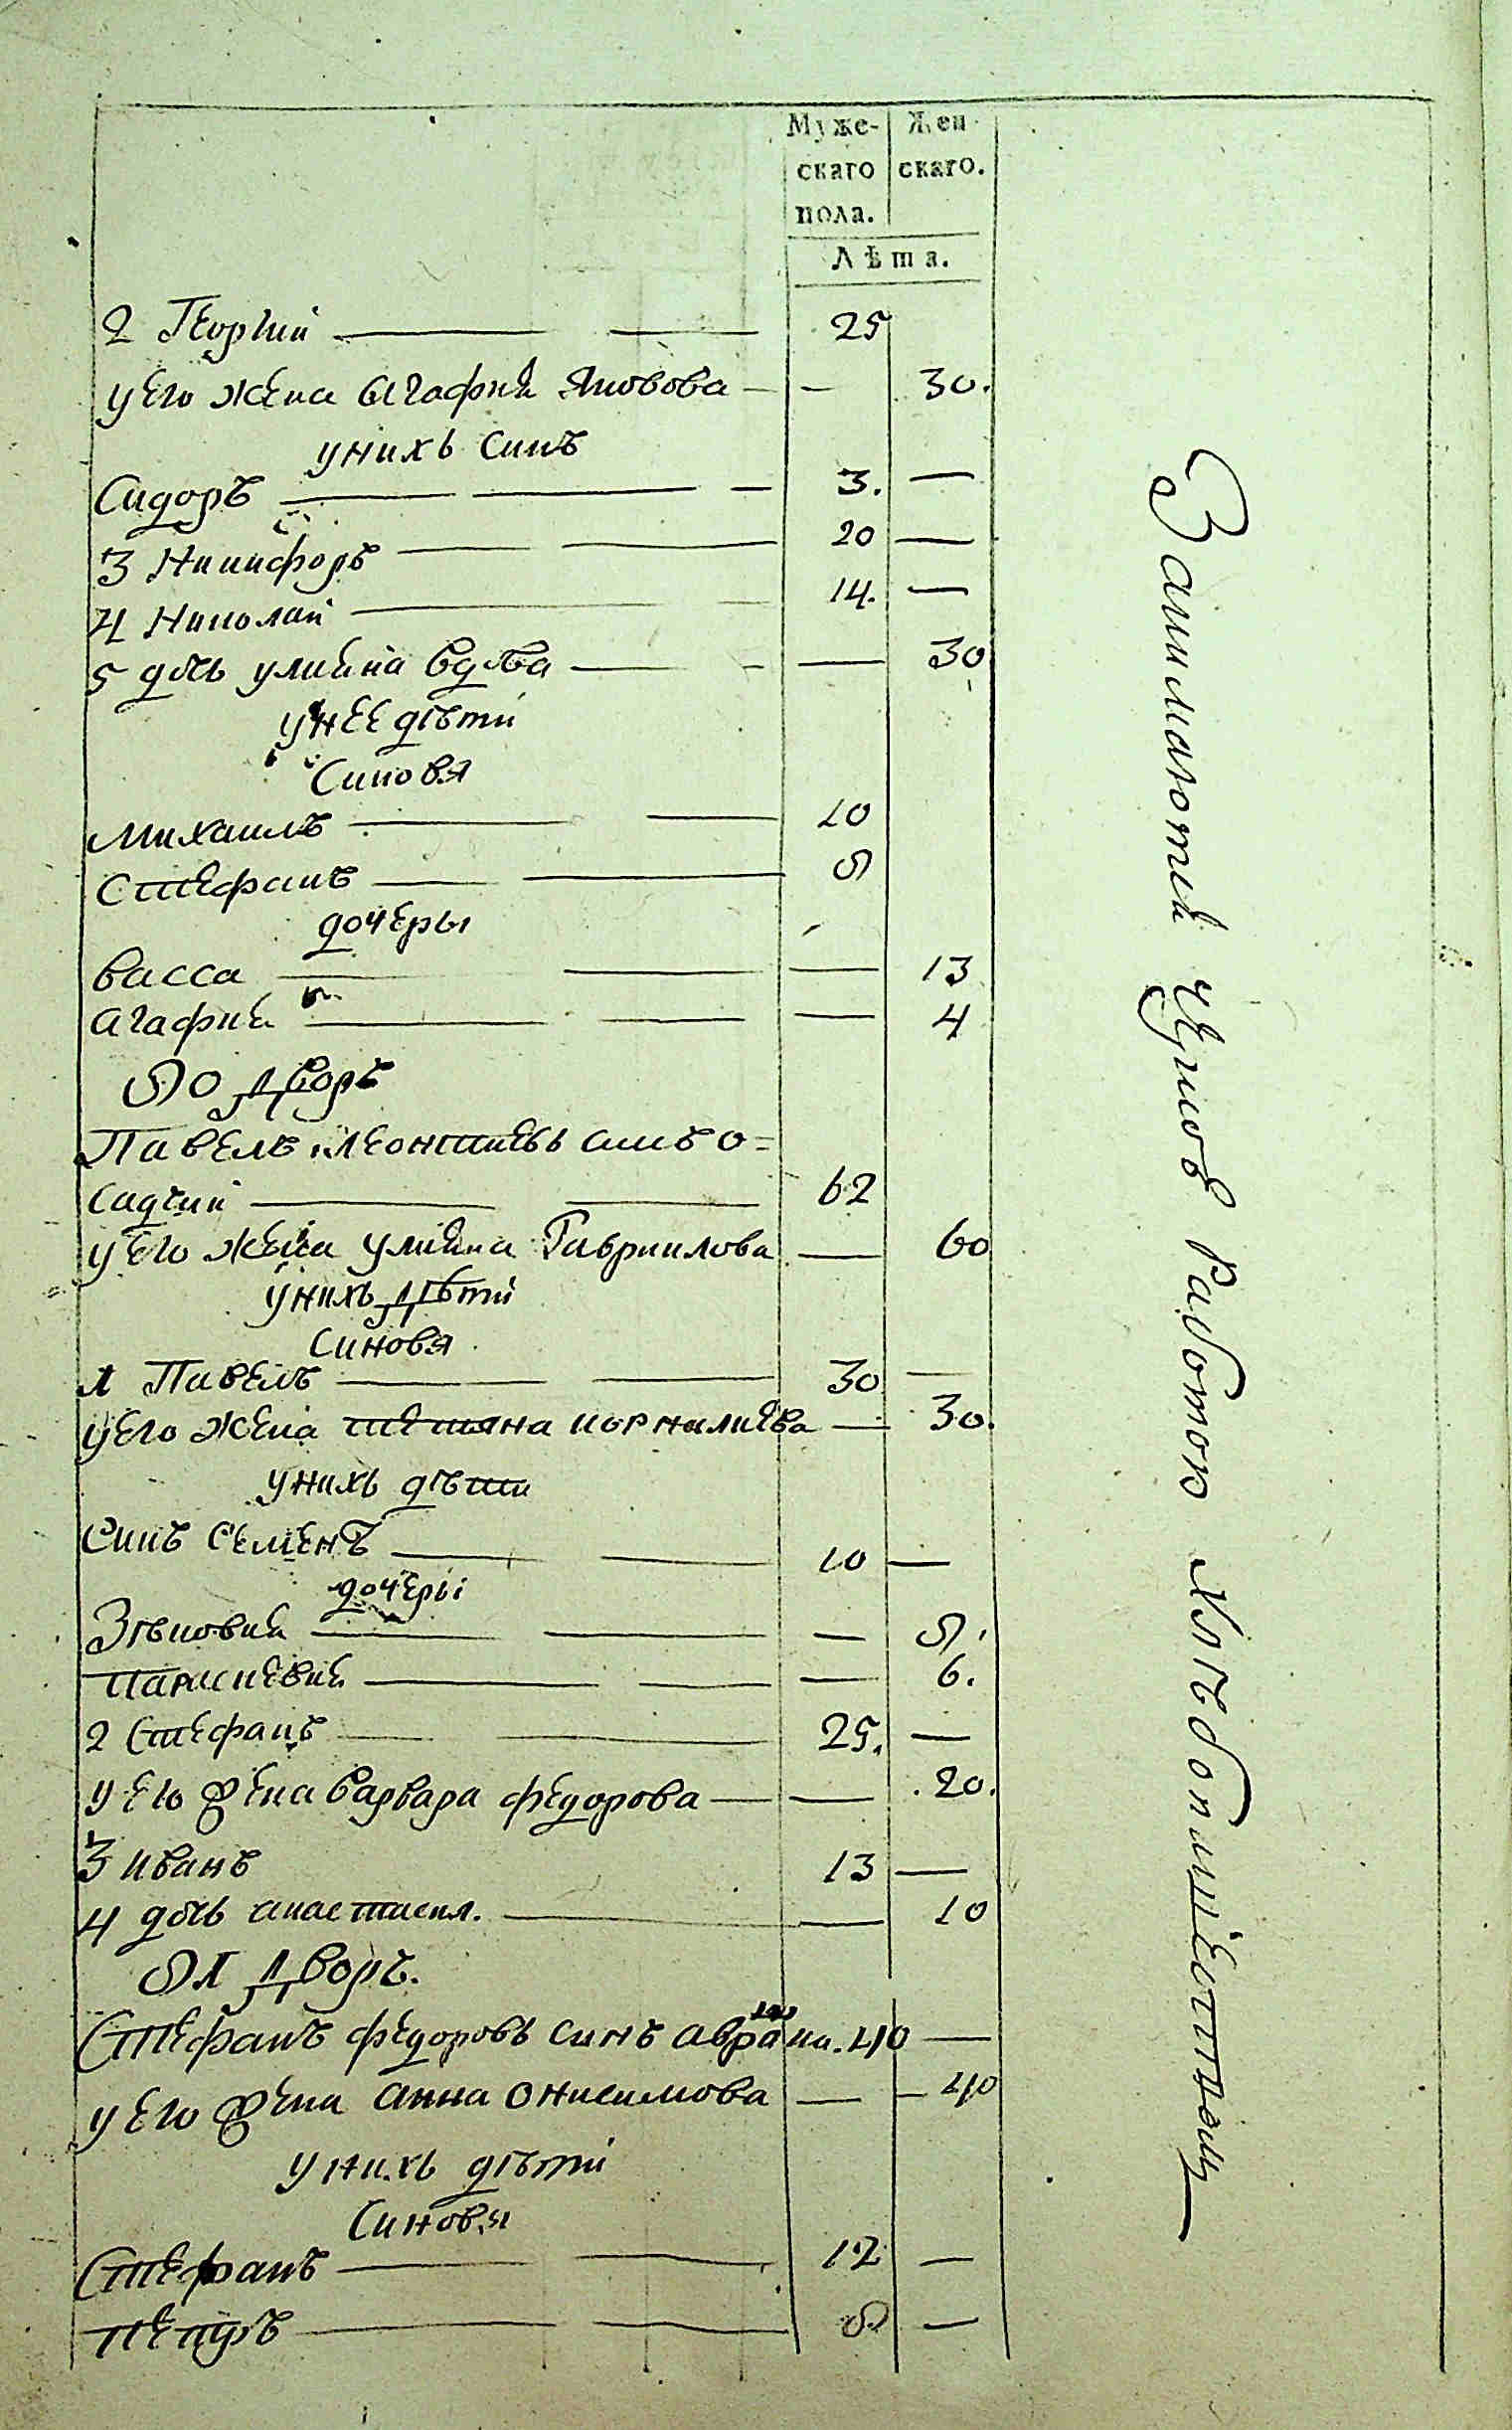 Муже- Жен-
скаго скаго.
пола.
Лѣта.
2 Георгий 25
у его жена Агафия Яковова 30.
у нихъ синъ
Сидоръ 3.
3 Никифоръ 20
4 Николай 14.
5 дочь улияна вдова 30
у нее дѣти
Синовя
Михаилъ 10
Стефанъ 8
дочеры
Васса 13
Агафия 4
80 Дворъ
Павелъ Леонтиевъ синъ о=
садчий 62
у его жена улияна Гавриилова 60
у нихъ дѣти
Синовя
1 Павелъ 30
у его жена тетяна корналиева 30.
у нихъ дѣти
Синъ Семенъ 10
дочеры
Зѣновия 8.
Параскевия 6.
2 Стефанъ 25.
у его жена Варвара федорова 20.
3 иванъ 13
4 дочь анастасия. 10
81 Дворъ.
Стефанъ федоровъ синъ 40
у его жена Анна Онисимова 40
у нихъ дѣти
Синовя
Стефанъ 12
Петръ 8
Занимаютия работою хлѣбопашествомъ